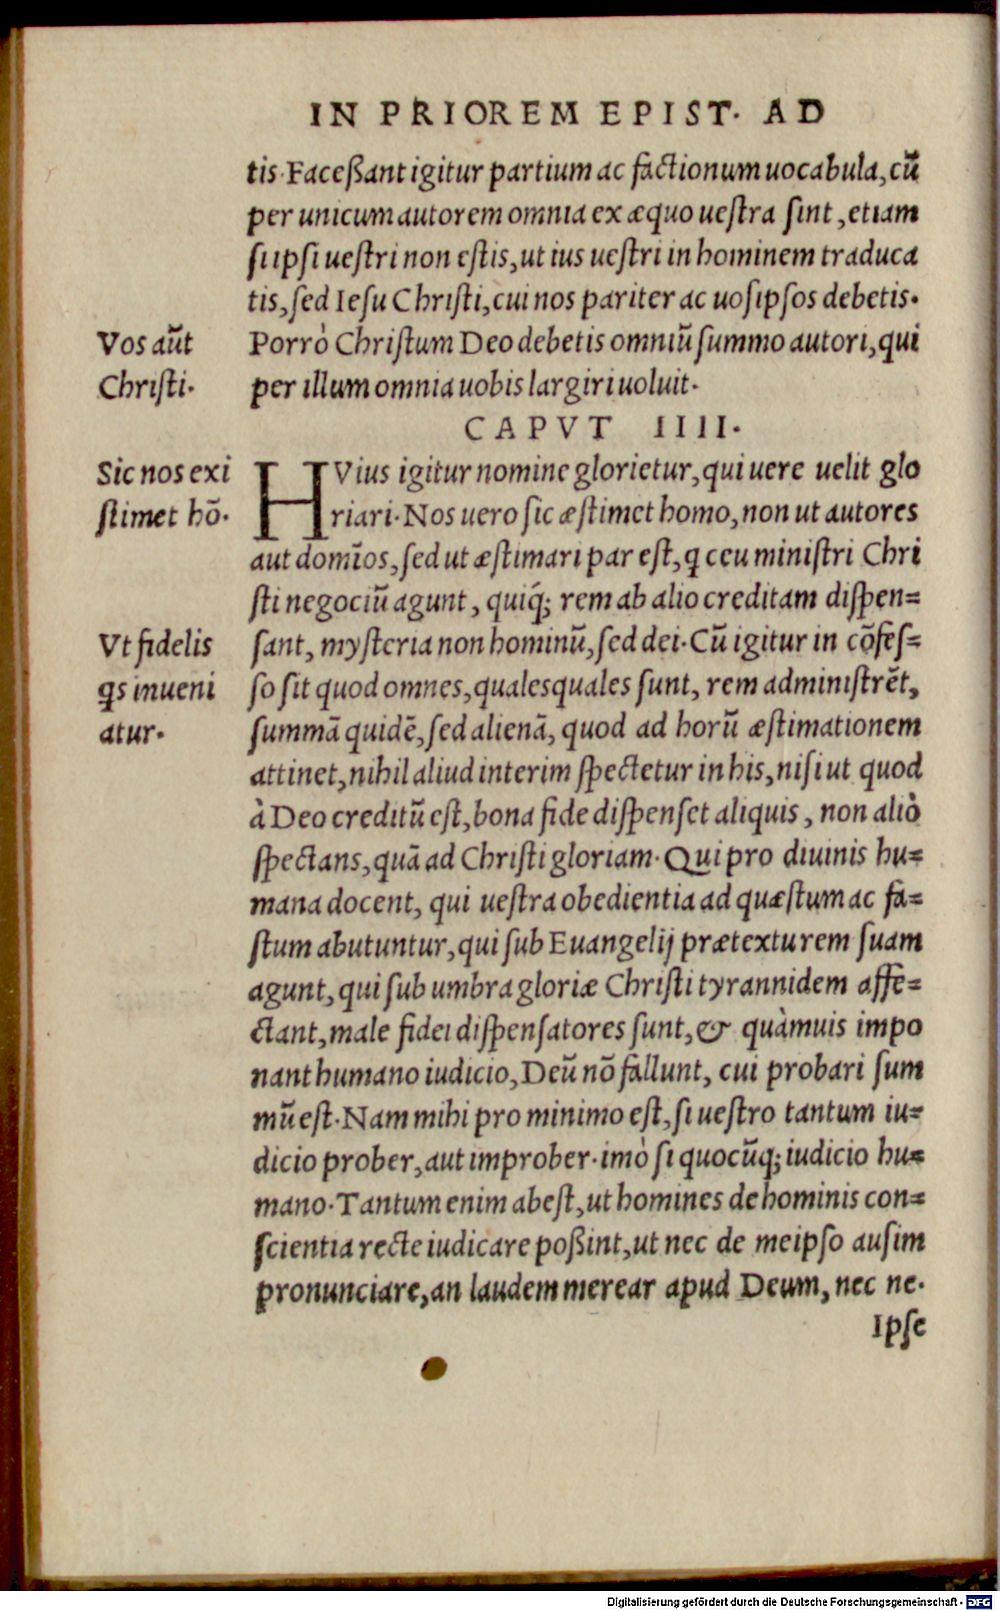 IN PRIOREM EPIST. AD
tis. Faceßant igitur partium ac factionum uocabula, cũ
per unicum autorem omnia ex æquo uestra sint, etiam
si ipsi uestri non estis, ut ius uestri in hominem traduca
tis, sed Iesu Christi, cui nos pariter ac uosipsos debetis.
Vos aũt
Christi.
Porrò Christum Deo debetis omniũ summo autori, qui
per illum omnia uobis largiri uoluit.
CAPVT IIII.
Sic nos exi
stimet hõ.
HVius igitur nomine glorietur, qui uere uelit glo
riari. Nos uero sic æstimet homo, non ut autores
aut domĩos, sed ut æstimari par est, q ceu ministri Chri
sti negociũ agunt, quiq́; rem ab alio creditam dispen=
Vt fidelis
qs inueni
atur.
sant, mysteria non hominũ, sed dei. Cũ igitur in cõfes=
so sit quod omnes, qualesquales sunt, rem administrẽt,
summã quidẽ, sed alienã, quod ad horũ æstimationem
attinet, nihil aliud interim spectetur in his, nisi ut quod
à Deo creditũ est, bona fide dispenset aliquis, non aliò
spectans, quã ad Christi gloriam. Qui pro diuinis hu=
mana docent, qui uestra obedientia ad quæstum ac fa=
stum abutuntur, qui sub Euangelij prætextu rem suam
agunt, qui sub umbra gloriæ Christi tyrannidem affe=
ctant, male fidei dispensatores sunt, & quàmuis impo
nant humano iudicio, Deũ nõ fallunt, cui probari sum
mũ est. Nam mihi pro minimo est, si uestro tantum iu=
dicio prober, aut improber. imò si quocũq; iudicio hu=
mano. Tantum enim abest, ut homines de hominis con=
scientia recte iudicare poßint, ut nec de meipso ausim
pronunciare, an laudem merear apud Deum, nec ne.
Ipse
Digitalisierung gefördert durch die Deutsche Forschungsgemeinschaft - DFG